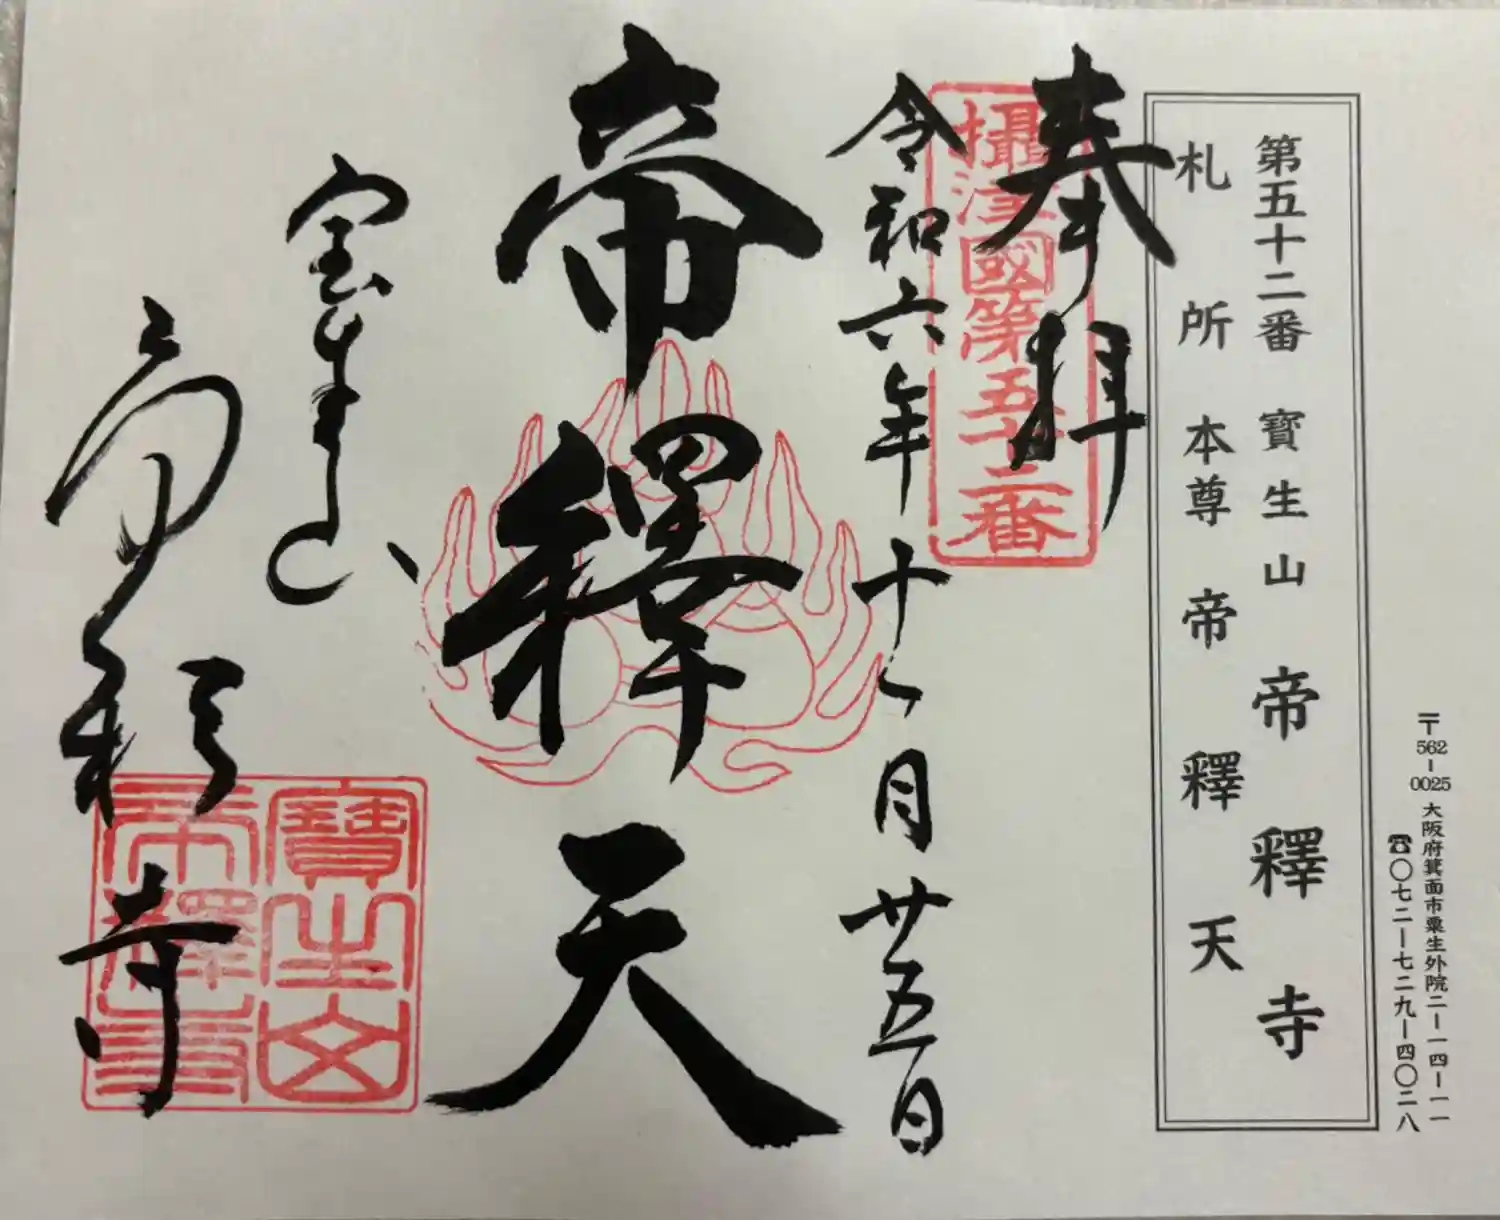 〒562-0025 大阪府箕面市粟生外院二-一四-一一
☎〇七二-七二九-四〇二八
第五十二番 寶生山 帝釋寺
札所 本尊 帝釋天
奉拝
攝津國第五十二番
令和六年十一月廿五日
帝釋天
宝生山
帝釈寺
寶生山
帝釋寺